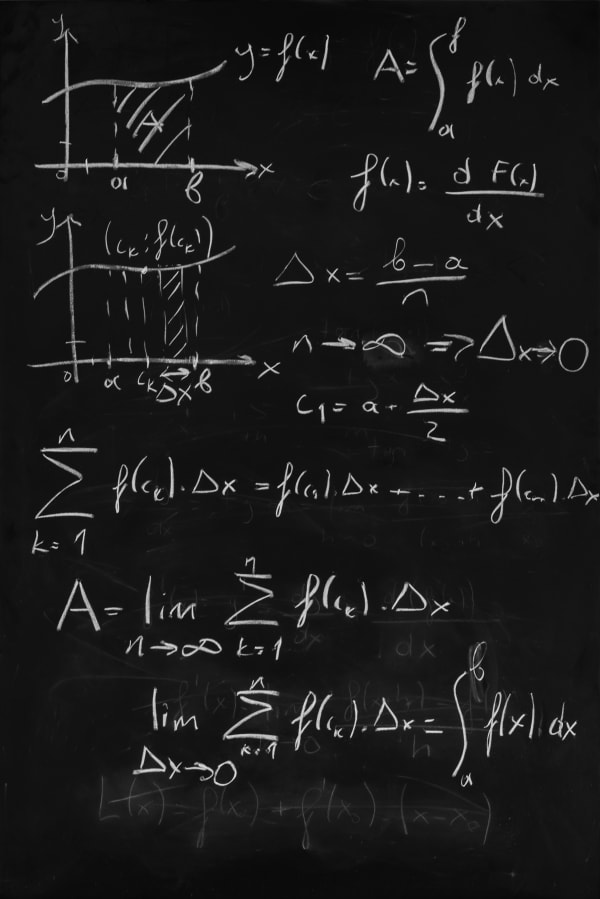 y
y = f(x)
A
0 a b x
A = ∫ₐᵇ f(x) dx
f(x) = d F(x) / dx
y
(cₖ; f(cₖ))
0 a cₖ Δx b x
Δx = (b - a) / n
n → ∞ => Δx → 0
c₁ = a + Δx / 2
∑ₖ₌₁ⁿ f(cₖ) . Δx = f(c₁) . Δx + .... + f(cₙ) . Δx
A = lim n→∞ ∑ₖ₌₁ⁿ f(cₖ) . Δx
lim Δx→0 ∑ₖ₌₁ⁿ f(cₖ) . Δx = ∫ₐᵇ f(x) dx
L(x) = f(x) + f'(x₀) . (x - x₀)